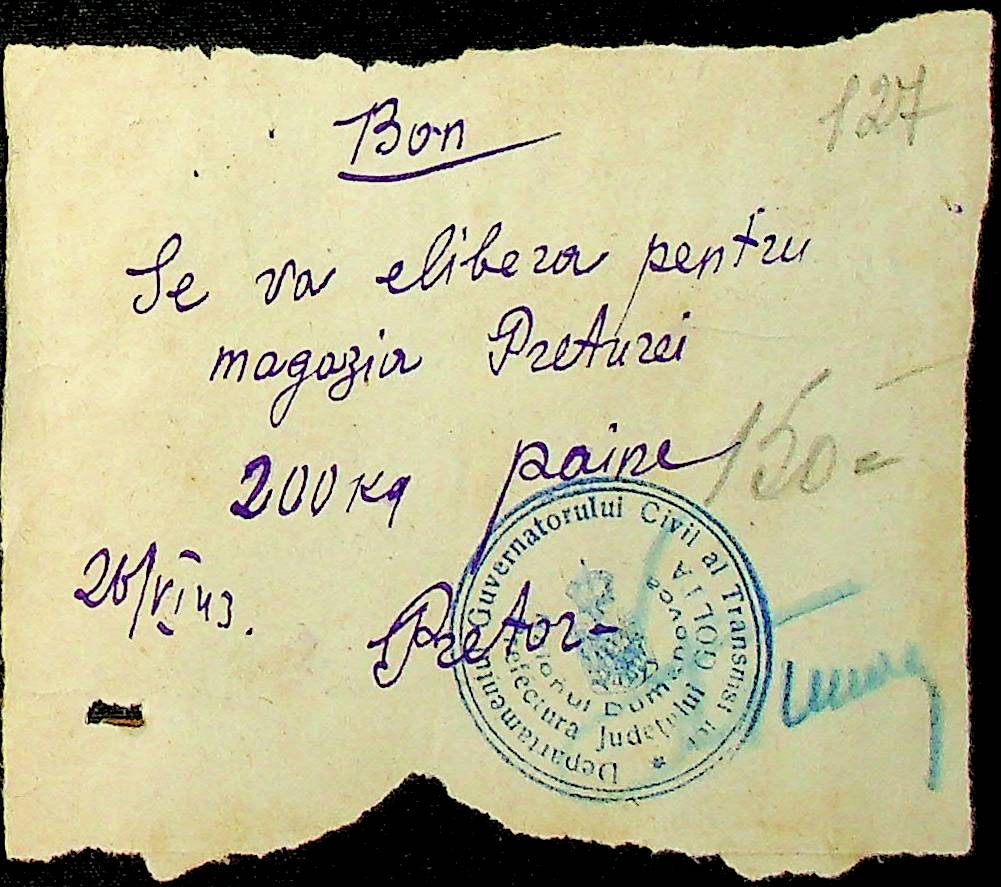 127
Bon
Se va elibera pentru
magazia Preturei
200 kg paine
150=
26/VI 43.
Pretor-
Departamentul Guvernatorului Civil al Transnistriei
Prefectura Județului GOLTA
Raionul Dumanovca